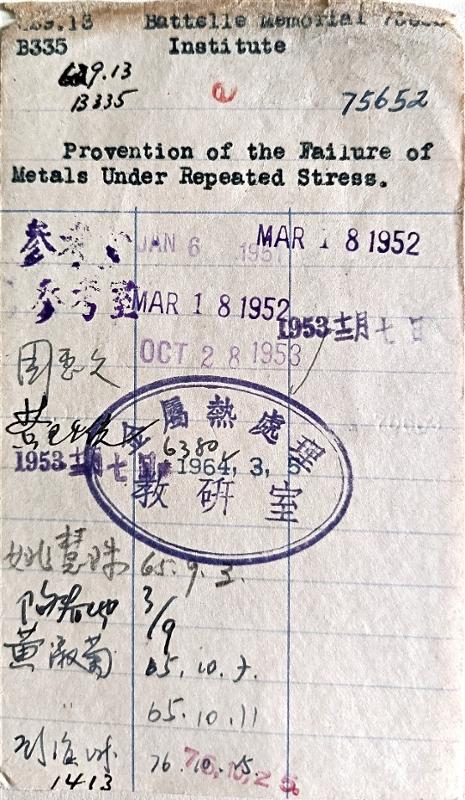 629.13 Battelle Memorial 75652
B335 Institute
629.13
B335
a
75652
Provention of the Failure of
Metals Under Repeated Stress.
参考室 JAN 6 195 MAR 18 1952
参考室 MAR 18 1952
1953 十二月 七日
OCT 28 1953
周惠久
金属熱處理
6380
1953 十二月 七日 1964, 3, 5
教研室
姚慧珠 65.9.3.
3/9
黄淑菊 65.10.7.
65.10.11
76.10.15
1413